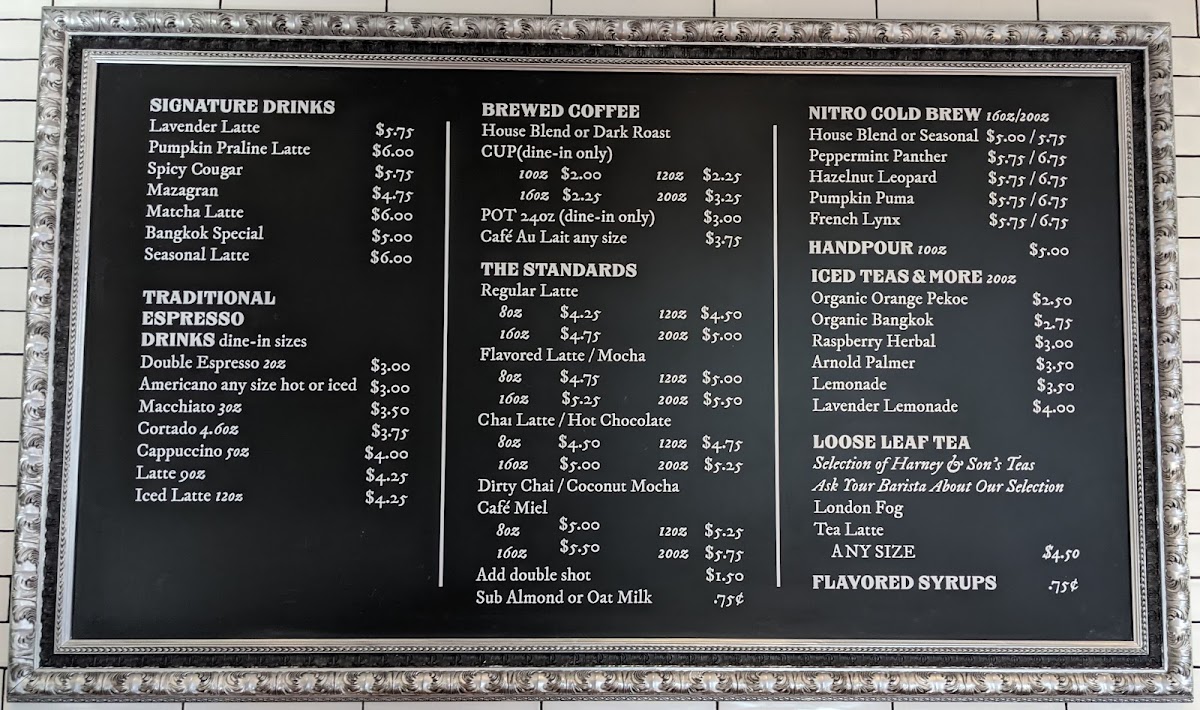 SIGNATURE DRINKS
Lavender Latte $5.75
Pumpkin Praline Latte $6.00
Spicy Cougar $5.75
Mazagran $4.75
Matcha Latte $6.00
Bangkok Special $5.00
Seasonal Latte $6.00
TRADITIONAL
ESPRESSO
DRINKS dine-in sizes
Double Espresso 2oz $3.00
Americano any size hot or iced $3.00
Macchiato 3oz $3.50
Cortado 4.6oz $3.75
Cappuccino 5oz $4.00
Latte 9oz $4.25
Iced Latte 12oz $4.25
BREWED COFFEE
House Blend or Dark Roast
CUP(dine-in only)
10oz $2.00 12oz $2.25
16oz $2.25 20oz $3.25
POT 24oz (dine-in only) $3.00
Café Au Lait any size $3.75
THE STANDARDS
Regular Latte
8oz $4.25 12oz $4.50
16oz $4.75 20oz $5.00
Flavored Latte / Mocha
8oz $4.75 12oz $5.00
16oz $5.25 20oz $5.50
Chai Latte / Hot Chocolate
8oz $4.50 12oz $4.75
16oz $5.00 20oz $5.25
Dirty Chai / Coconut Mocha
Café Miel
8oz $5.00 12oz $5.25
16oz $5.50 20oz $5.75
Add double shot $1.50
Sub Almond or Oat Milk .75¢
NITRO COLD BREW 16oz/20oz
House Blend or Seasonal $5.00 / 5.75
Peppermint Panther $5.75 / 6.75
Hazelnut Leopard $5.75 / 6.75
Pumpkin Puma $5.75 / 6.75
French Lynx $5.75 / 6.75
HANDPOUR 10oz $5.00
ICED TEAS & MORE 20oz
Organic Orange Pekoe $2.50
Organic Bangkok $2.75
Raspberry Herbal $3.00
Arnold Palmer $3.50
Lemonade $3.50
Lavender Lemonade $4.00
LOOSE LEAF TEA
Selection of Harney & Son's Teas
Ask Your Barista About Our Selection
London Fog
Tea Latte
ANY SIZE $4.50
FLAVORED SYRUPS .75¢